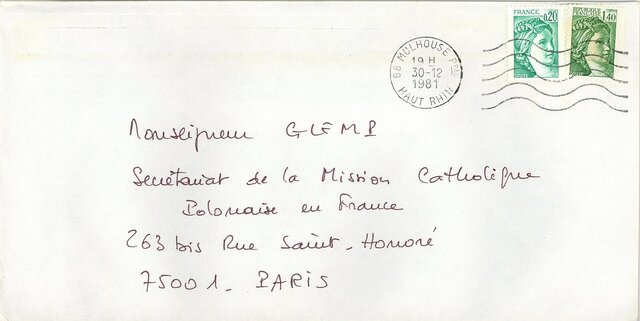 FRANCE 0,20
REPUBLIQUE FRANÇAISE 1,40
68 MULHOUSE Pᵃˡ
19 H
30-12
1981
HAUT RHIN
Monseigneur GLEMP
Secrétariat de la Mission Catholique
Polonaise en France
263 bis Rue Saint-Honoré
75001 - PARIS